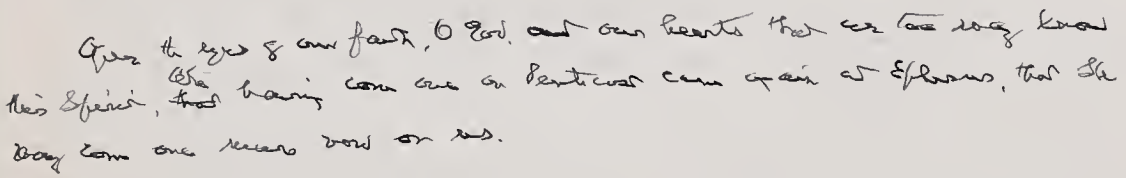 Open the eyes of our faith, O God, and our hearts that we too may know
this Spirit, who having come once on Pentecost came again at Ephesus, that She
may come once more now on us.